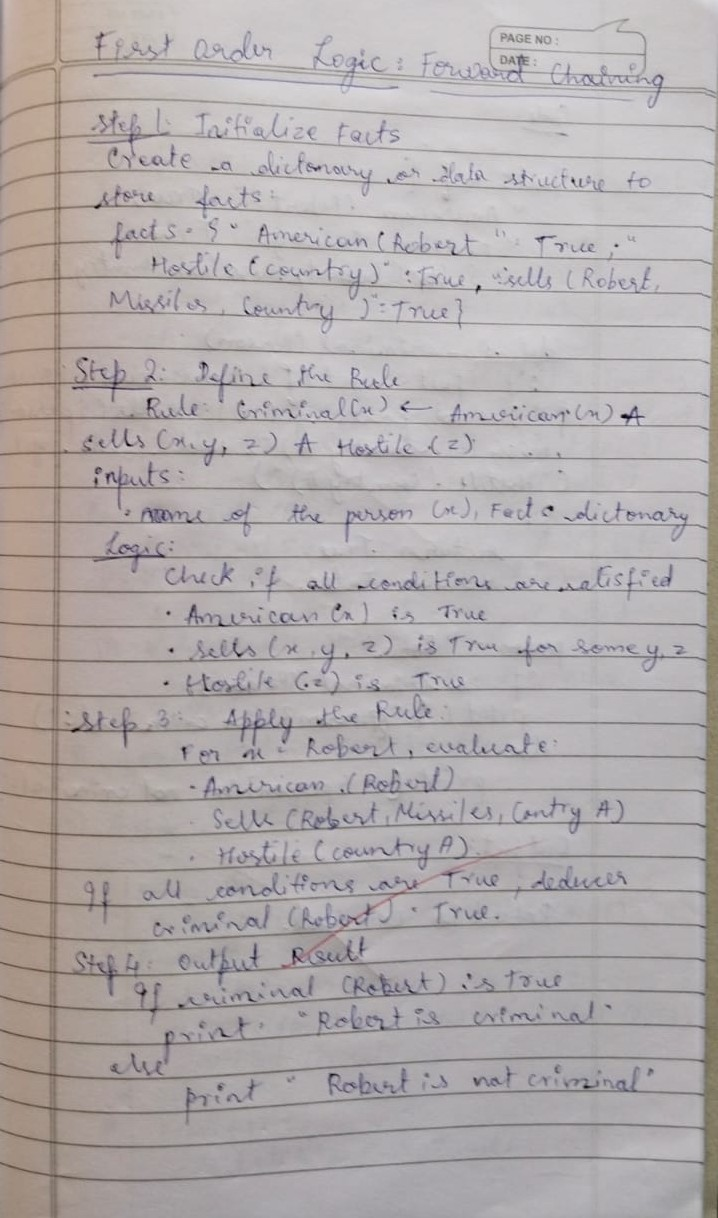 PAGE NO :
DATE :
First order Logic : Forward Chaining
Step 1: Initialize Facts
Create a dictonary or data structure to
store facts:
facts = { " American (Robert " : True ; "
Hostile (country)" : True, "sells (Robert,
Missiles, Country )" = True }
Step 2: Define the Rule
Rule: Criminal(x) ← American (x) ∧
sells (x, y, z) ∧ Hostile (z)
inputs:
• Name of the person (x), Facts dictonary
Logic:
Check if all conditions are satisfied
• American (x) is True
• Sells (x, y, z) is True for some y, z
• Hostile (z) is True
Step 3: Apply the Rule:
For x = Robert, evaluate:
• American (Robert)
Sells (Robert, Missiles, Contry A)
• Hostile (country A)
If all conditions are True, deduce
criminal (Robert) = True.
Step 4: Output Result
If criminal (Robert) is true
print. "Robert is criminal"
else
print " Robert is not criminal"